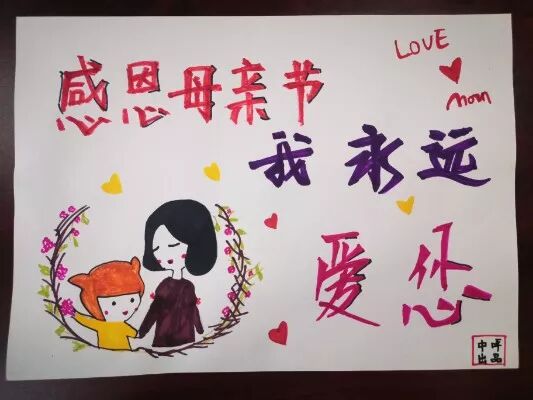 感恩母亲节
LOVE
mom
我永远
爱您
出品